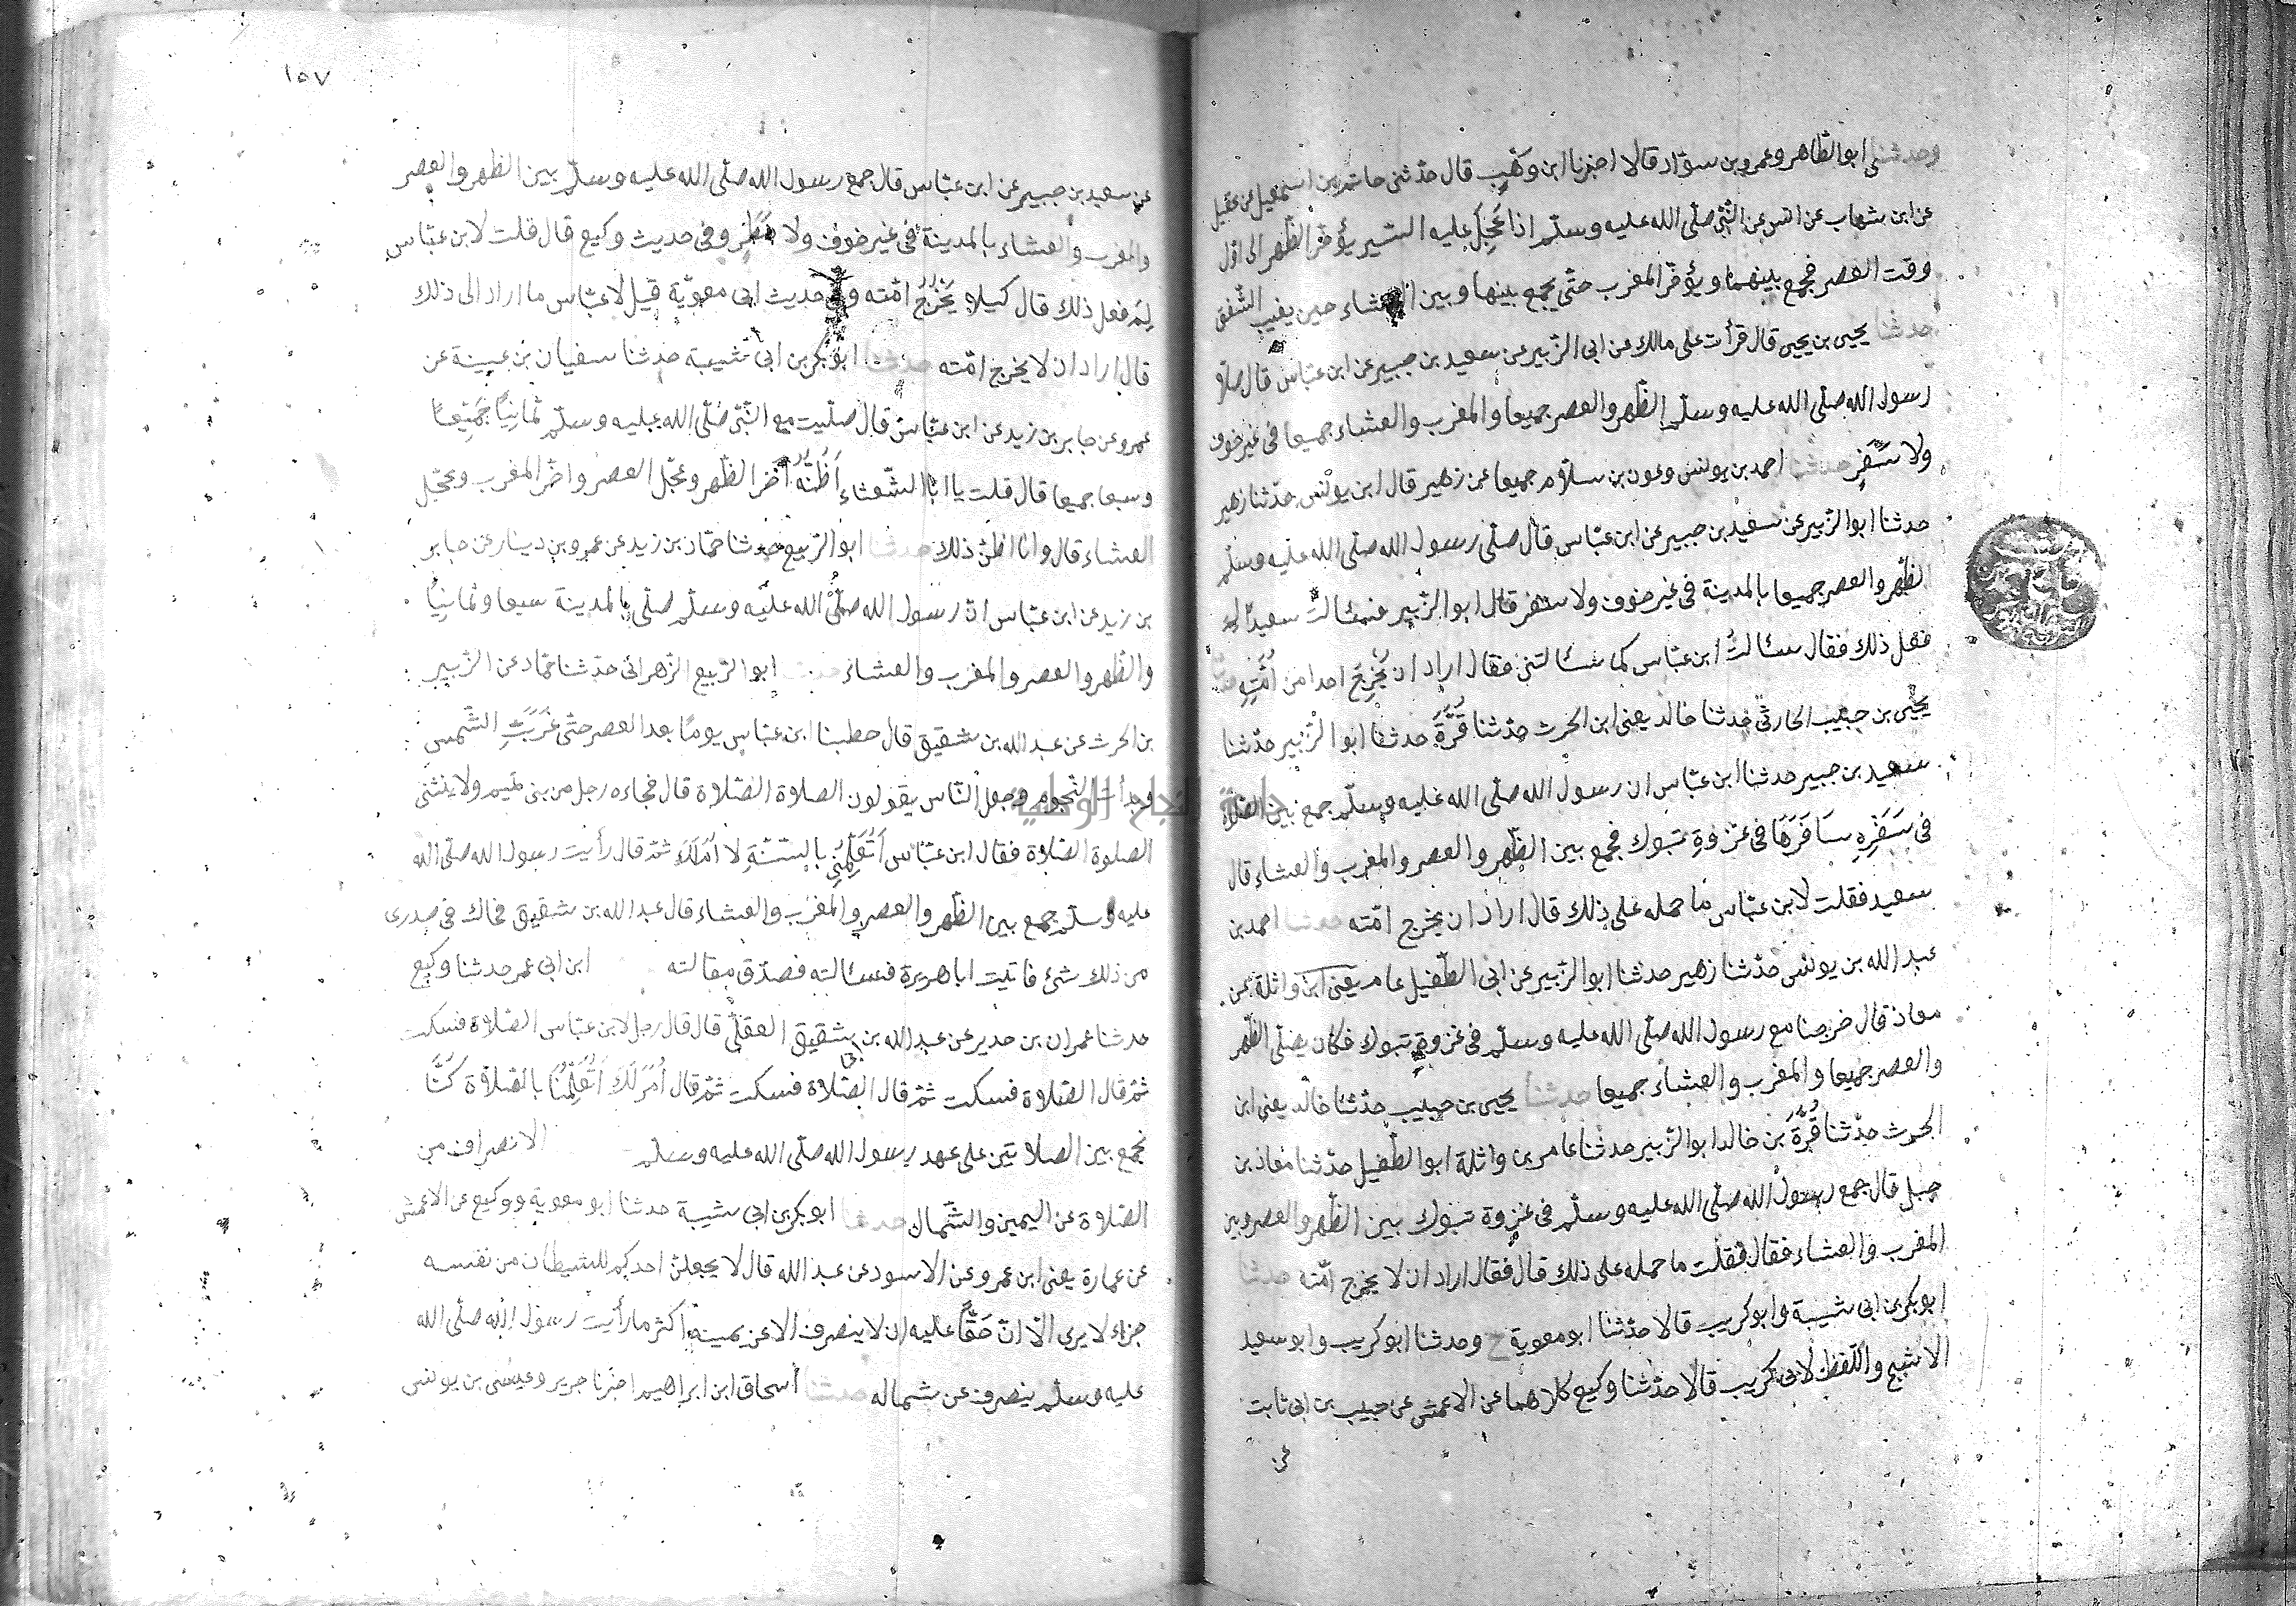 وحدثنى ابو الطّاهر وعمرو بن سوّاد قالا اخبرنا ابن وهب قال حدّثنى حاتم بن اسمعيل عن عقيل
عن ابن شهاب عن انس عن النّبىّ صلّى الله عليه وسلّم اذا عَجِلَ عليه السّير يؤخّر الظّهر الى اوّل
وقت العصر فجمع بينهما ويؤخّر المغرب حتّى يجمع بينها وبين العشاء حين يغيب الشّفق
حدثنا يحيى بن يحيى قال قرأت على مالك عن ابى الزّبير عن سعيد بن جبير عن ابن عبّاس قال صلّا
رسول الله صلّى الله عليه وسلّم الظّهر والعصر جميعا والمغرب والعشاء جميعا فى غير خوف
ولا سَفَرٍ حدثنا احمد بن يونس وعون بن سلّام جميعا عن زهير قال ابن يونس حدّثنا زهير
حدثنا ابو الزّبير عن سعيد بن جبير عن ابن عبّاس قال صلّى رسول الله صلّى الله عليه وسلّم
الظّهر والعصر جميعا بالمدينة فى غير خوف ولا سفر قال ابو الزّبير فسئالت سعيدًا لم
فعل ذلك فقال سئالتُ ابن عبّاس كما سئالتنى فقال اراد ان يُحْرِجَ احدا من اُمَّتِهِ حدثنا
يحيى بن حبيب الحارثى حدثنا خالد يعنى ابن الحرث حدّثنا قُرَّةُ حدثنا ابو الزّبير حدّثنا
سعيد بن جبير حدثنا ابن عبّاس ان رسول الله صلّى الله عليه وسلّم جمع بين الصّلاة
فى سَفَرِهِ سَافَرَهَا فى غزوةِ تبوك فجمع بين الظّهر والعصر والمغرب والعشاء قال
سعيد فقلت لابن عبّاس ما حمله على ذلك قال اراد ان يحرج امّته حدثنا احمد بن
عبد الله بن يونس حدّثنا زهير حدثنا ابو الزّبير عن ابى الطّفيل عامر يعنى ابن واثلة عن
معاذ قال خرجنا مع رسول الله صلّى الله عليه وسلّم فى غزوةِ تبوك فكان يصلّى الظّهر
والعصر جميعا والمغرب والعشاء جميعا حدثنا يحيى بن حبيب حدّثنا خالد يعنى ابن
الحرث حدّثنا قُرَّةُ بن خالد ابو الزّبير حدثنا عامر بن واثلة ابو الطّفيل حدّثنا معاذ بن
جبل قال جمع رسول الله صلّى الله عليه وسلّم فى غزوة تبوك بين الظّهر والعصر وبين
المغرب والعشاء فقال فقلت ما حمله على ذلك قال فقال اراد ان لا يحرج امّته حدثنا
ابو بكر بن ابى شيبة وابو كريب قالا حدّثنا ابو معوية ح وحدثنا ابو كريب وابو سعيد
الاشج واللّفظ لابى كريب قالا حدّثنا وكيع كلاهما عن الاعمش عن حبيب بن ابى ثابت
عن
١٥٧
عن سعيد بن جبير عن ابن عبّاس قال جمع رسول الله صلّى الله عليه وسلّم بين الظّهر والعصر
والمغرب والعشاء بالمدينة فى غير خوف ولا مَطَرٍ وفى حديث وكيع قال قلت لابن عبّاس
لِمَ فعل ذلك قال كيلا يُحْرِجُ امّته وفى حديث ابى معوية قيل لابن عبّاس ما اراد الى ذلك
قال اراد ان لا يحرج امّته حدثنا ابو بكر بن ابى شيبة حدثنا سفيان بن عيينة عن
عمرو عن جابر بن زيد عن ابن عبّاس قال صلّيت مع النّبىّ صلّى الله عليه وسلّم ثمانيًا جَمِيْعًا
وسبعا جميعا قال قلت يا ابا الشّعثاء اَظُنُّهُ اَخّر الظّهر وعجّل العصر واخّر المغرب وعجّل
العشاء قال وانا اظنّ ذلك حدثنا ابو الرّبيع حدثنا حمّاد بن زيد عن عمرو بن دينار عن جابر
بن زيد عن ابن عبّاس انّ رسول الله صلّى الله عليه وسلّم صلّى بالمدينة سبعا وثمانيًا
والظّهر والعصر والمغرب والعشاء ابو الرّبيع الزّهرانى حدّثنا حمّاد عن الزّبير
بن الحرث عن عبد الله بن شقيق قال خطبنا ابن عبّاس يومًا بعد العصر حتّى غَرَبَتِ الشّمس
وبدأت النّجوم وجعل النّاس يقولون الصلاة الصّلاة قال فجاءه رجل من بنى تميم ولا ينثنى
الصلوة الصّلاة فقال ابن عبّاس اَتُعَلِّمُنِى بالسّنّةِ لا اُمّ لَكَ ثمّ قال رأيت رسول الله صلّى الله
عليه وسلّم جمع بين الظّهر والعصر والمغرب والعشاء قال عبد الله بن شقيق فحاك فى صدرى
من ذلك شئ فاتيت ابا هريرة فسئالته فصدّق مقالته ابن ابى عمر حدثنا وكيع
حدثنا عمران بن حدير عن عبد الله بن شقيق العقلىّ قال قال رجل لابن عبّاس الصّلاة فسكت
ثمّ قال الصّلاة فسكت ثمّ قال الصّلاة فسكت ثمّ قال لا اُمّ لَكَ اَتُعَلِّمُنَا بالصّلاة كُنَّا
نجمع بين الصلاتين على عهد رسول الله صلّى الله عليه وسلّم الانصراف من
الصّلاة عن اليمين والشّمال حدثنا ابو بكر بن ابى شيبة حدثنا ابو معوية ووكيع عن الاعمش
عن عمارة يعنى ابن عمرو عن الاسود عن عبد الله قال لا يجعلنّ احدكم للشيطان من نفسه
جزاء لا يرى الّا انّ حَقًّا عليه ان لا ينصرف الا عن يمينه اكثر ما رأيت رسول الله صلّى الله
عليه وسلّم ينصرف عن شماله حدثنا اسحاق ابن ابراهيم اخبرنا جرير وعيسى بن يونس
جامعة النجاح الوطنية